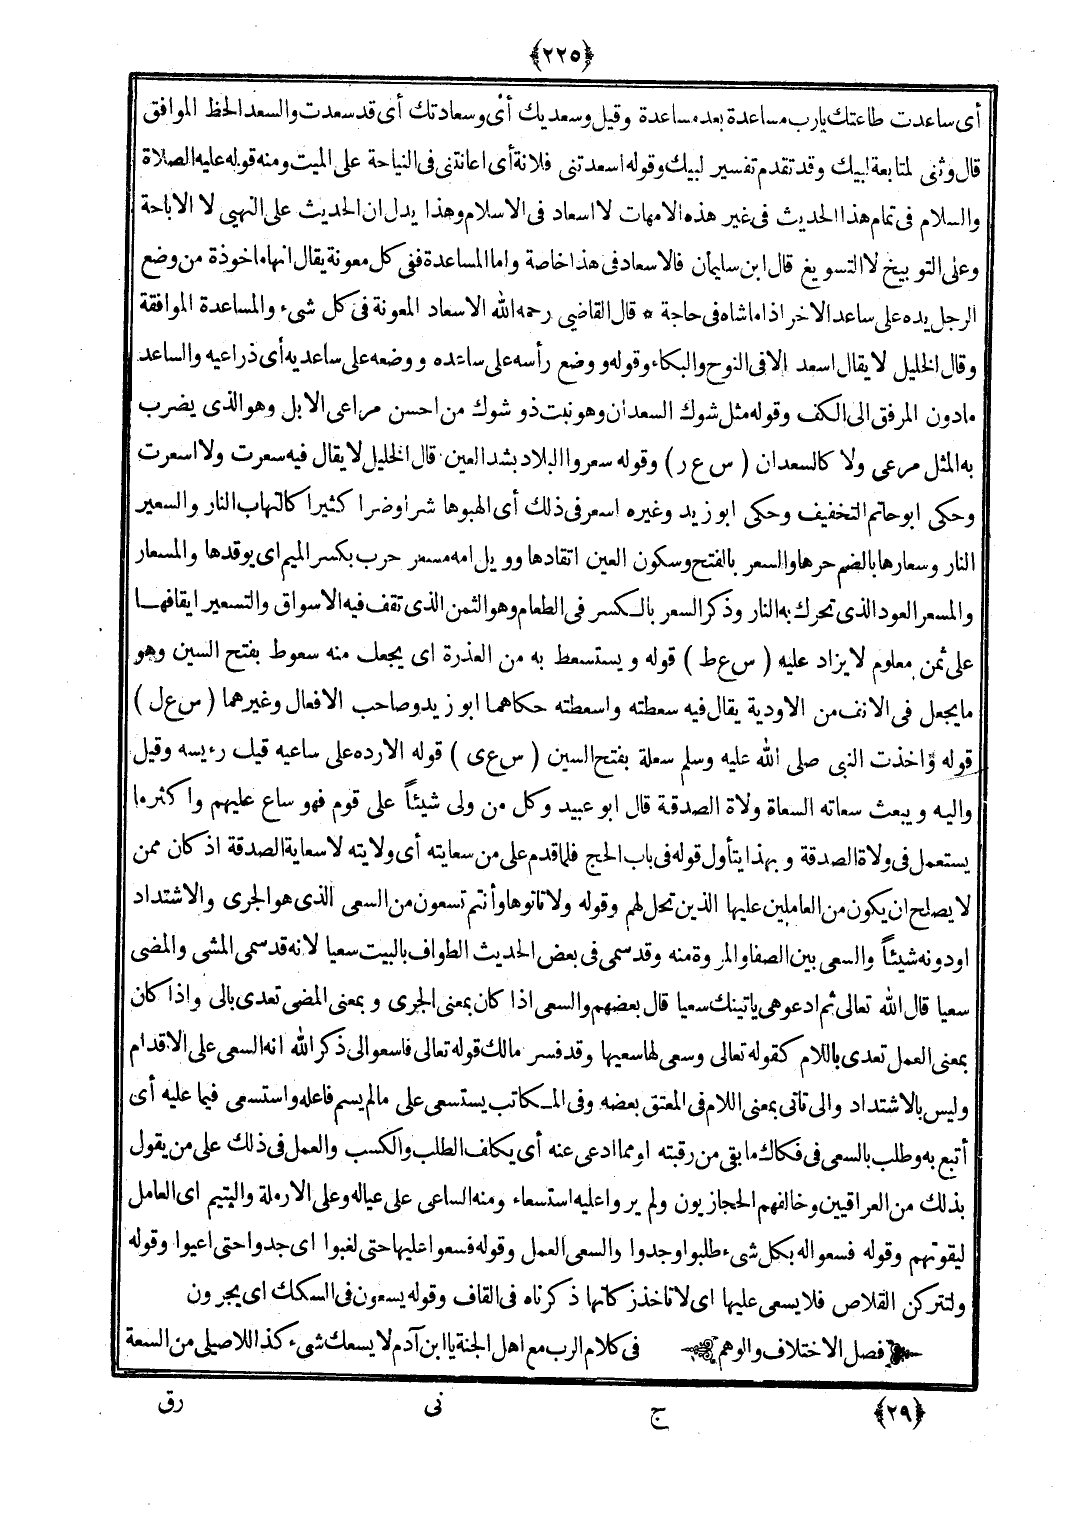 ﴿٢٢٥﴾
أى ساعدت طاعتك يارب مساعدة بعد مساعدة وقيل وسعديك أى وسعادتك أى قد سعدت والسعد الحظ الموافق
قال وثنى لمتابعة لبيك وقد تقدم تفسير لبيك وقوله اسعدتنى فلانة أى اعانتنى فى النياحة على الميت ومنه قوله عليه الصلاة
والسلام فى تمام هذا الحديث فى غير هذه الامهات لا اسعاد فى الاسلام وهذا يدل ان الحديث على النهى لا الاباحة
وعلى التوبيخ لا التسويغ قال ابن سليمان فالاسعاد فى هذا خاصة واما المساعدة ففى كل معونة يقال انها ماخوذة من وضع
الرجل يده على ساعد الاخر اذا ماشاه فى حاجة * قال القاضى رحمه الله الاسعاد المعونة فى كل شىء والمساعدة الموافقة
وقال الخليل لا يقال اسعد الا فى النوح والبكاء وقوله ووضع رأسه على ساعده ووضعه على ساعديه أى ذراعيه والساعد
مادون المرفق الى الكف وقوله مثل شوك السعدان وهو نبت ذو شوك من احسن مراعى الابل وهو الذى يضرب
به المثل مرعى ولا كالسعدان ( س ع ر ) وقوله سعروا البلاد بشد العين قال الخليل لا يقال فيه سعرت ولا اسعرت
وحكى ابو حاتم التخفيف وحكى ابو زيد وغيره اسعر فى ذلك أى الهبوها شرا وضرا كثيرا كالتهاب النار والسعير
النار وسعارها بالضم حرها والسعر بالفتح وسكون العين اتقادها وويل امه مسعر حرب بكسر الميم اى يوقدها والمسعار
والمسعر العود الذى تحرك به النار وذكر السعر بالكسر فى الطعام وهو الثمن الذى تقف فيه الاسواق والتسعير ايقافها
على ثمن معلوم لا يزاد عليه ( س ع ط ) قوله ويستسعط به من العذرة اى يجعل منه سعوط بفتح السين وهو
ما يجعل فى الانف من الاودية يقال فيه سعطته واسعطته حكاهما ابو زيد وصاحب الافعال وغيرهما ( س ع ل )
قوله واخذت النبى صلى الله عليه وسلم سعلة بفتح السين ( س ع ى ) قوله الارده على ساعيه قيل رءيسه وقيل
واليه ويبعث سعاته السعاة ولاة الصدقة قال ابو عبيد وكل من ولى شيئاً على قوم فهو ساع عليهم واكثر ما
يستعمل فى ولاة الصدقة وبهذا يتأول قوله فى باب الحج فلما قدم على من سعايته أى ولايته لا سعاية الصدقة اذ كان ممن
لا يصلح ان يكون من العاملين عليها الذين تحل لهم وقوله ولا تاتوها وأنتم تسعون من السعى الذى هو الجرى والاشتداد
اودونه شيئاً والسعى بين الصفا والمروة منه وقد سمى فى بعض الحديث الطواف بالبيت سعيا لانه قد سمى المشى والمضى
سعيا قال الله تعالى ثم ادعوهن ياتينك سعيا قال بعضهم والسعى اذا كان بمعنى الجرى وبمعنى المضى تعدى بالى واذا كان
بمعنى العمل تعدى باللام كقوله تعالى وسعى لها سعيها وقد فسر مالك قوله تعالى فاسعوا الى ذكر الله انه السعى على الاقدام
وليس بالاشتداد والى تاتى بمعنى اللام فى المعتق بعضه وفى المكاتب يستسعى على مالم يسم فاعله واستسعى فيما عليه أى
أتبع به وطلب بالسعى فى فكاك ما بقى من رقبته او مما ادعى عنه أى يكلف الطلب والكسب والعمل فى ذلك على من يقول
بذلك من العراقيين وخالفهم الحجازيون ولم يروا عليه استسعاء ومنه الساعى على عياله وعلى الارملة واليتيم اى العامل
ليقوتهم وقوله فسعوا له بكل شىء طلبوا وجدوا والسعى العمل وقوله فسعوا عليها حتى لغبوا اى جدوا حتى اعيوا وقوله
ولتتركن القلاص فلا يسعى عليها اى لا تاخذ زكاتها ذكرناه فى القاف وقوله يسعون فى السكك اى يجرون
فصل الاختلاف والوهم فى كلام الرب مع اهل الجنة يا ابن آدم لا يسعك شىء كذا للاصيلى من السعة
﴿٢٩﴾ ج نى رق